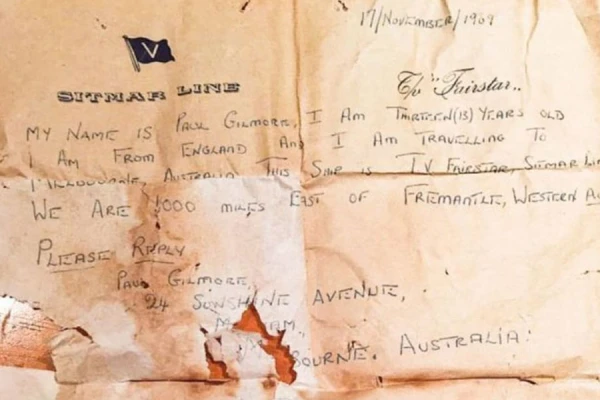 17/NOVEMBER/1969
V
SITMAR LINE
T/V "Fairstar"..
MY NAME IS PAUL GILMORE, I AM THIRTEEN (13) YEARS OLD
I AM FROM ENGLAND AND I AM TRAVELLING TO
MELBOURNE, AUSTRALIA THIS SHIP IS TV FAIRSTAR, SITMAR LIN
WE ARE 1000 MILES EAST OF FREMANTLE, WESTERN AU
PLEASE REPLY
PAUL GILMORE,
24 SUNSHINE AVENUE,
BOURNE. AUSTRALIA.